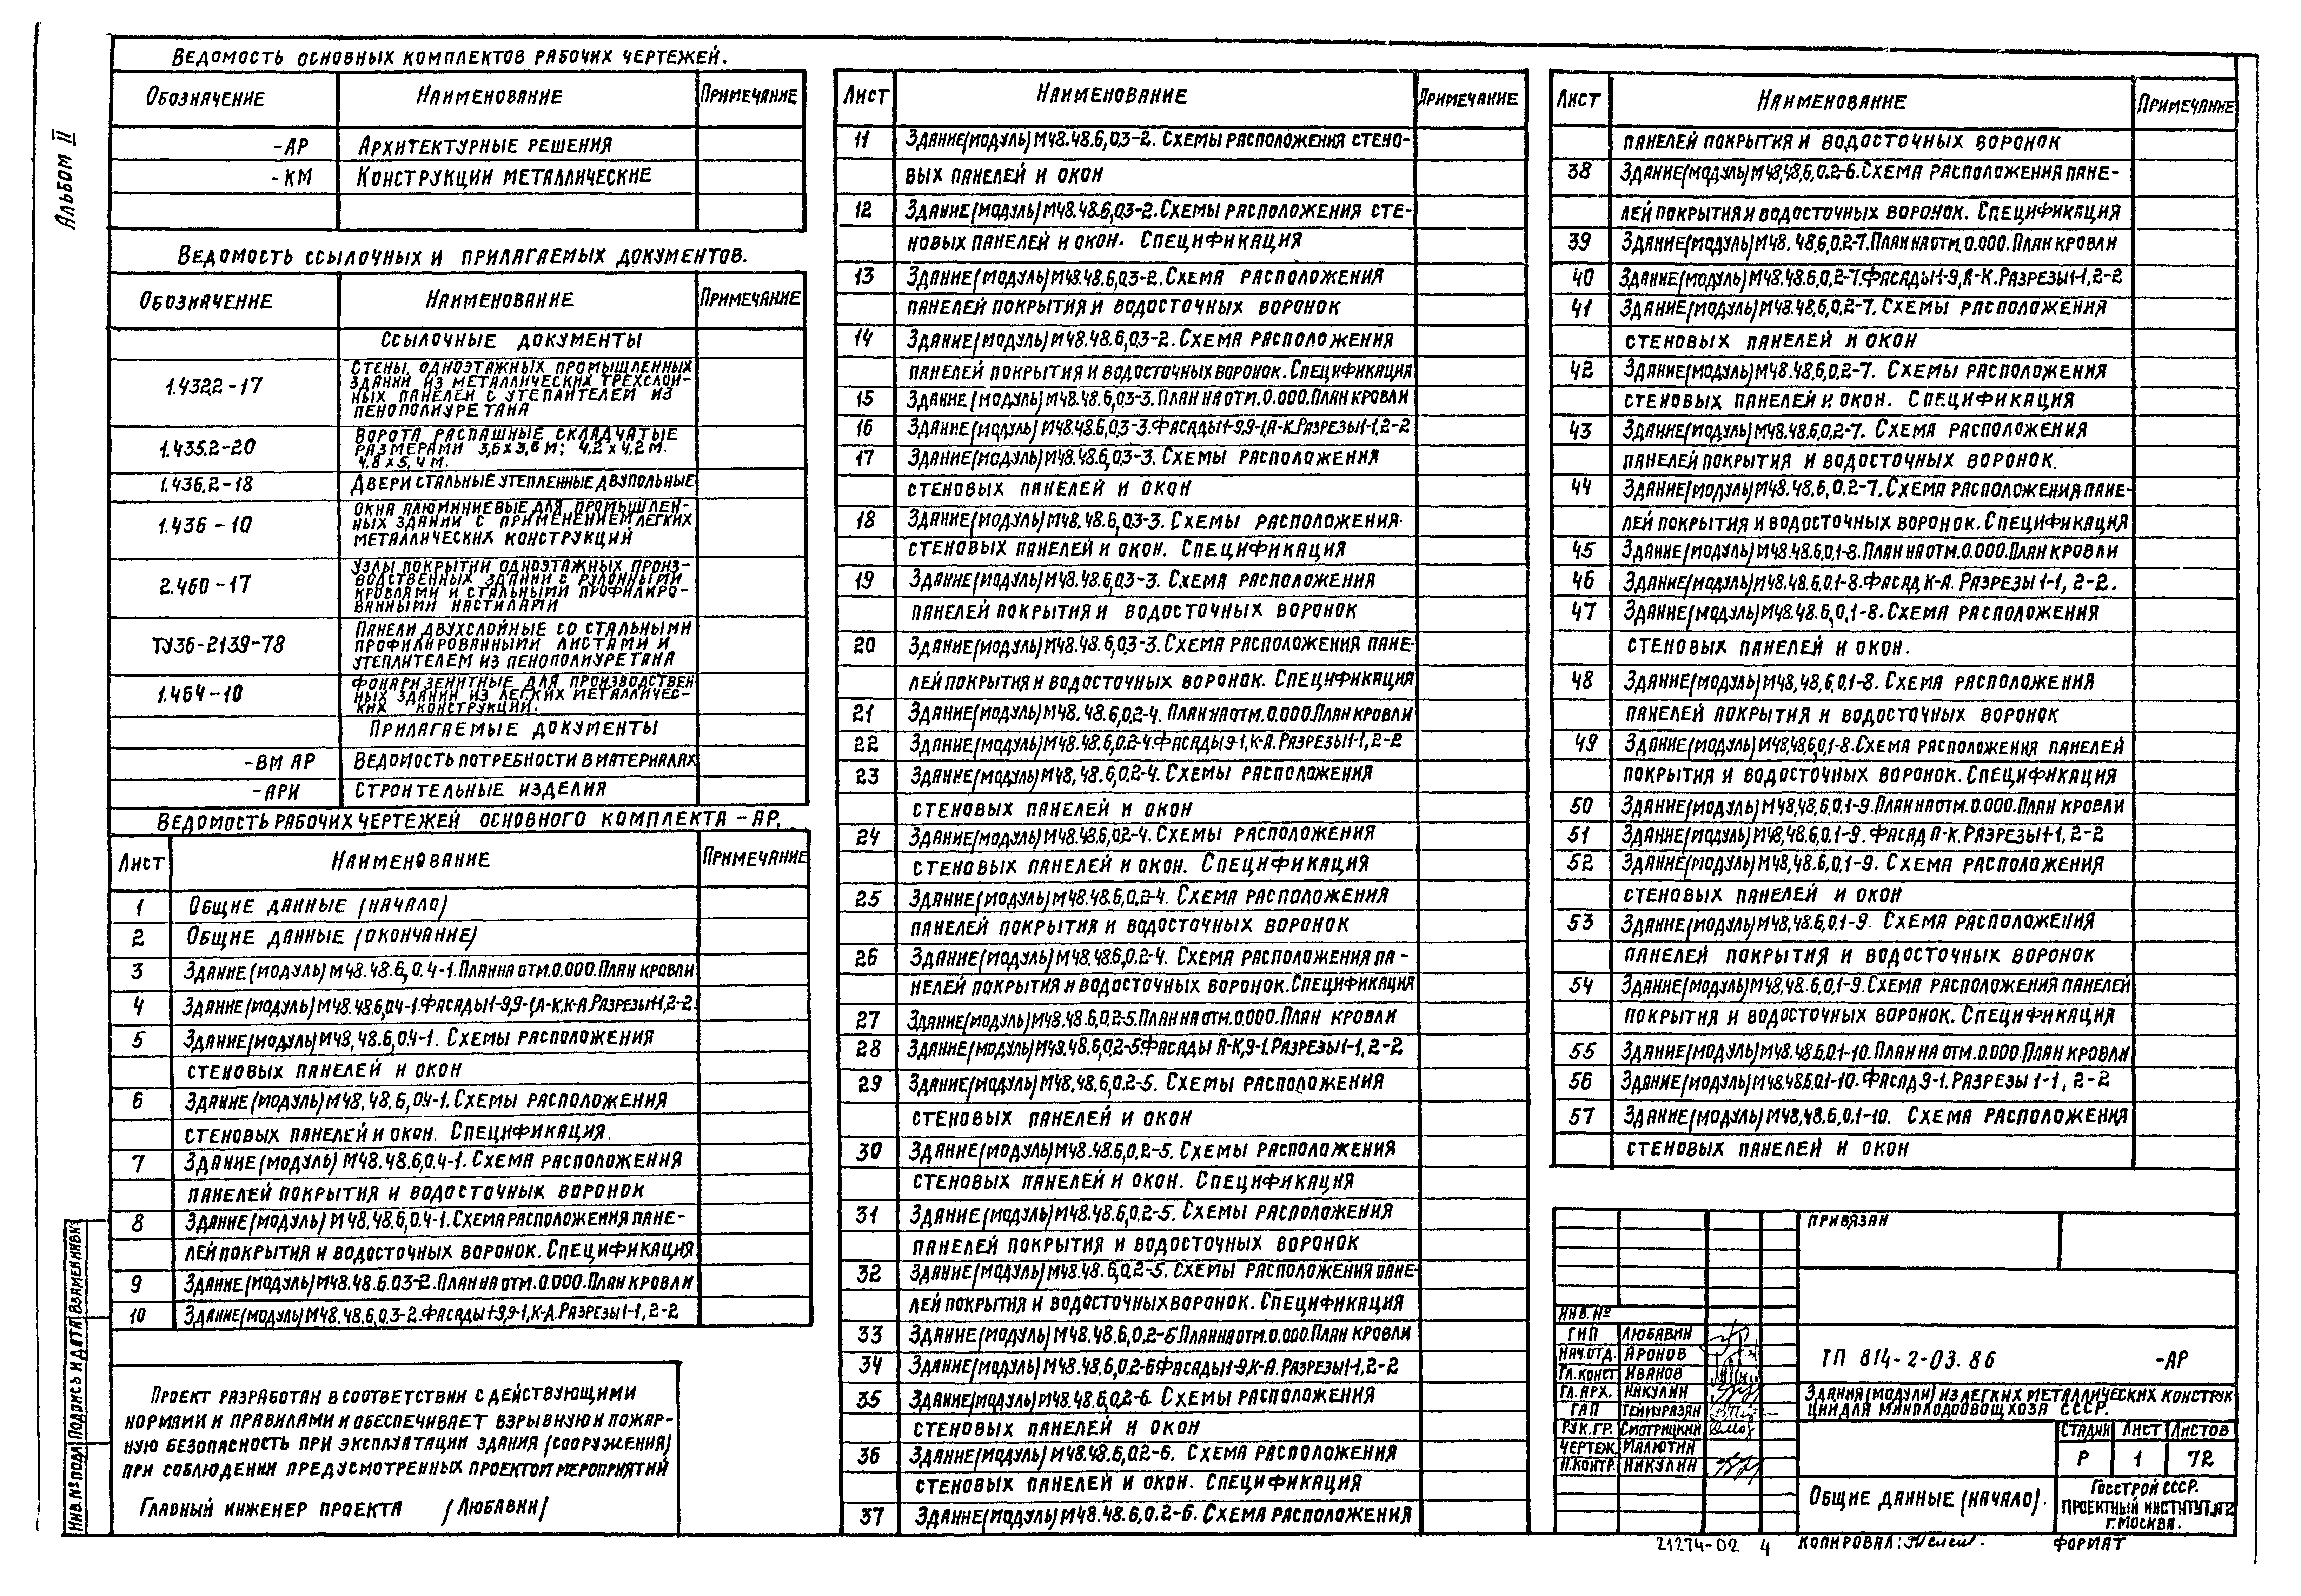 Альбом II
Ведомость основных комплектов рабочих чертежей.
Обозначение Наименование Примечание
-АР Архитектурные решения
-КМ Конструкции металлические
Ведомость ссылочных и прилагаемых документов.
Обозначение Наименование Примечание
Ссылочные документы
1.432.2-17 Стены одноэтажных промышленных
зданий из металлических трехслой-
ных панелей с утеплителем из
пенополиуретана
1.435.2-20 Ворота распашные складчатые
размерами 3,6х3,6 м; 4,2х4,2 м.
4,8х5,4 м.
1.436.2-18 Двери стальные утепленные двупольные
1.436-10 Окна алюминиевые для промышлен-
ных зданий с применением легких
металлических конструкций
2.460-17 Узлы покрытий одноэтажных произ-
водственных зданий с рулонными
кровлями и стальными профилиро-
ванными настилами
ТУ36-2139-78 Панели двухслойные со стальными
профилированными листами и
утеплителем из пенополиуретана
1.464-10 Фонари зенитные для производствен
ных зданий из легких металличес-
ких конструкций.
Прилагаемые документы
-ВМ АР Ведомость потребности в материалах
-АРИ Строительные изделия
Ведомость рабочих чертежей основного комплекта -АР.
Лист Наименование Примечание
1 Общие данные (начало)
2 Общие данные (окончание)
3 Здание (модуль) М48.48.6,0.4-1. План на отм. 0.000. План кровли
4 Здание (модуль) М48.48.6,0.4-1. Фасады 1-9, 9-1, А-К, К-А. Разрезы 1-1, 2-2.
5 Здание (модуль) М48.48.6,0.4-1. Схемы расположения
стеновых панелей и окон
6 Здание (модуль) М48.48.6,0.4-1. Схемы расположения
стеновых панелей и окон. Спецификация.
7 Здание (модуль) М48.48.6,0.4-1. Схема расположения
панелей покрытия и водосточных воронок
8 Здание (модуль) М48.48.6,0.4-1. Схема расположения пане-
лей покрытия и водосточных воронок. Спецификация.
9 Здание (модуль) М48.48.6.0.3-2. План на отм. 0.000. План кровли
10 Здание (модуль) М48.48.6,0.3-2. Фасады 1-9, 9-1, К-А. Разрезы 1-1, 2-2
Проект разработан в соответствии с действующими
нормами и правилами и обеспечивает взрывную и пожар-
ную безопасность при эксплуатации здания (сооружения)
при соблюдении предусмотренных проектом мероприятий
Главный инженер проекта /Любавин/
Инв. № подл. Подпись и дата Взамен инв. №
Лист Наименование Примечание
11 Здание (модуль) М48.48.6,0.3-2. Схемы расположения стено-
вых панелей и окон
12 Здание (модуль) М48.48.6,0.3-2. Схемы расположения сте-
новых панелей и окон. Спецификация
13 Здание (модуль) М48.48.6,0.3-2. Схема расположения
панелей покрытия и водосточных воронок
14 Здание (модуль) М48.48.6,0.3-2. Схема расположения
панелей покрытия и водосточных воронок. Спецификация
15 Здание (модуль) М48.48.6,0.3-3. План на отм. 0.000. План кровли
16 Здание (модуль) М48.48.6,0.3-3. Фасады 1-9, 9-1, А-К. Разрезы 1-1, 2-2
17 Здание (модуль) М48.48.6,0.3-3. Схемы расположения
стеновых панелей и окон
18 Здание (модуль) М48.48.6,0.3-3. Схемы расположения
стеновых панелей и окон. Спецификация
19 Здание (модуль) М48.48.6,0.3-3. Схема расположения
панелей покрытия и водосточных воронок
20 Здание (модуль) М48.48.6,0.3-3. Схема расположения пане-
лей покрытия и водосточных воронок. Спецификация
21 Здание (модуль) М48.48.6,0.2-4. План на отм. 0.000. План кровли
22 Здание (модуль) М48.48.6,0.2-4. Фасады 9-1, К-А. Разрезы 1-1, 2-2
23 Здание (модуль) М48.48.6,0.2-4. Схемы расположения
стеновых панелей и окон
24 Здание (модуль) М48.48.6,0.2-4. Схемы расположения
стеновых панелей и окон. Спецификация
25 Здание (модуль) М48.48.6,0.2-4. Схема расположения
панелей покрытия и водосточных воронок
26 Здание (модуль) М48.48.6,0.2-4. Схема расположения па-
нелей покрытия и водосточных воронок. Спецификация
27 Здание (модуль) М48.48.6,0.2-5. План на отм. 0.000. План кровли
28 Здание (модуль) М48.48.6,0.2-5. Фасады А-К, 9-1. Разрезы 1-1, 2-2
29 Здание (модуль) М48.48.6,0.2-5. Схемы расположения
стеновых панелей и окон
30 Здание (модуль) М48.48.6,0.2-5. Схемы расположения
стеновых панелей и окон. Спецификация
31 Здание (модуль) М48.48.6,0.2-5. Схемы расположения
панелей покрытия и водосточных воронок
32 Здание (модуль) М48.48.6,0.2-5. Схемы расположения пане-
лей покрытия и водосточных воронок. Спецификация
33 Здание (модуль) М48.48.6,0.2-6. План на отм. 0.000. План кровли
34 Здание (модуль) М48.48.6,0.2-6 Фасады 1-9, К-А. Разрезы 1-1, 2-2
35 Здание (модуль) М48.48.6,0.2-6. Схемы расположения
стеновых панелей и окон
36 Здание (модуль) М48.48.6,0.2-6. Схемы расположения
стеновых панелей и окон. Спецификация
37 Здание (модуль) М48.48.6,0.2-6. Схема расположения
Лист Наименование Примечание
панелей покрытия и водосточных воронок
38 Здание (модуль) М48.48.6,0.2-6. Схема расположения пане-
лей покрытия и водосточных воронок. Спецификация
39 Здание (модуль) М48.48.6,0.2-7. План на отм. 0.000. План кровли
40 Здание (модуль) М48.48.6,0.2-7. Фасады 1-9, А-К. Разрезы 1-1, 2-2
41 Здание (модуль) М48.48.6,0.2-7. Схемы расположения
стеновых панелей и окон
42 Здание (модуль) М48.48.6,0.2-7. Схемы расположения
стеновых панелей и окон. Спецификация
43 Здание (модуль) М48.48.6,0.2-7. Схема расположения
панелей покрытия и водосточных воронок.
44 Здание (модуль) М48.48.6,0.2-7. Схема расположения пане-
лей покрытия и водосточных воронок. Спецификация
45 Здание (модуль) М48.48.6,0.1-8. План на отм. 0.000. План кровли
46 Здание (модуль) М48.48.6,0.1-8. Фасад К-А. Разрезы 1-1, 2-2.
47 Здание (модуль) М48.48.6,0.1-8. Схема расположения
стеновых панелей и окон.
48 Здание (модуль) М48.48.6,0.1-8. Схема расположения
панелей покрытия и водосточных воронок
49 Здание (модуль) М48.48.6,0.1-8. Схема расположения панелей
покрытия и водосточных воронок. Спецификация
50 Здание (модуль) М48.48.6,0.1-9. План на отм. 0.000. План кровли
51 Здание (модуль) М48.48.6,0.1-9. Фасад А-К. Разрезы 1-1, 2-2
52 Здание (модуль) М48.48.6,0.1-9. Схема расположения
стеновых панелей и окон
53 Здание (модуль) М48.48.6,0.1-9. Схема расположения
панелей покрытия и водосточных воронок
54 Здание (модуль) М48.48.6,0.1-9. Схема расположения панелей
покрытия и водосточных воронок. Спецификация
55 Здание (модуль) М48.48.6.0.1-10. План на отм. 0.000. План кровли
56 Здание (модуль) М48.48.6.0.1-10. Фасад 9-1. Разрезы 1-1, 2-2
57 Здание (модуль) М48.48.6,0.1-10. Схема расположения
стеновых панелей и окон
Привязан
Инв. №
ГИП Любавин
Нач. отд. Аронов
Гл. конст Иванов
Гл. арх. Никулин
ГАП Теймуразян
Рук. гр. Смотрицкий
Чертеж. Малютин
Н. контр. Никулин
ТП 814-2-03.86 -АР
Здания (модули) из легких металлических конструк
ций для Минплодоовощхоза СССР.
Стадия Лист Листов
Р 1 72
Общие данные (начало).
Госстрой СССР.
Проектный институт №2
г. Москва.
21274-02 4 Копировал: Формат